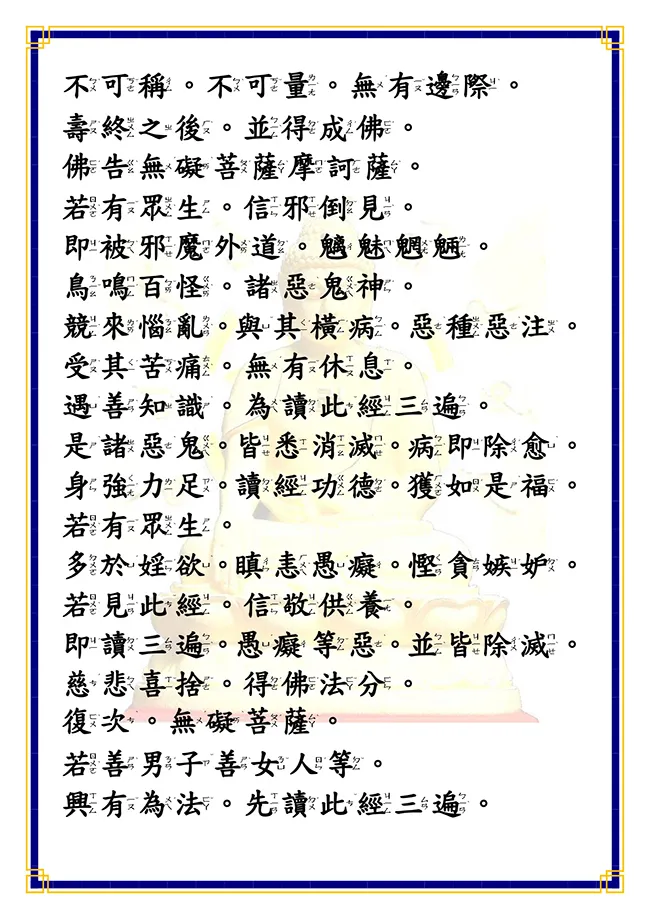 不可稱。不可量。無有邊際。
壽終之後。並得成佛。
佛告無礙菩薩摩訶薩。
若有眾生。信邪倒見。
即被邪魔外道。魑魅魍魎。
鳥鳴百怪。諸惡鬼神。
競來惱亂。與其橫病。惡種惡注。
受其苦痛。無有休息。
遇善知識。為讀此經三遍。
是諸惡鬼。皆悉消滅。病即除愈。
身強力足。讀經功德。獲如是福。
若有眾生。
多於婬欲。瞋恚愚癡。慳貪嫉妒。
若見此經。信敬供養。
即讀三遍。愚癡等惡。並皆除滅。
慈悲喜捨。得佛法分。
復次。無礙菩薩。
若善男子善女人等。
興有為法。先讀此經三遍。